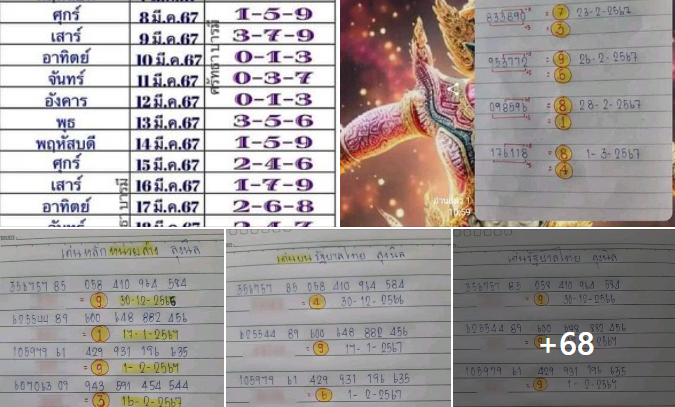 ศุกร์ 8 มี.ค.67 1-5-9
เสาร์ 9 มี.ค.67 3-7-9
อาทิตย์ 10 มี.ค.67 0-1-3
จันทร์ 11 มี.ค.67 0-3-7
อังคาร 12 มี.ค.67 0-1-3
พุธ 13 มี.ค.67 3-5-6
พฤหัสบดี 14 มี.ค.67 1-5-9
ศุกร์ 15 มี.ค.67 2-4-6
เสาร์ 16 มี.ค.67 1-7-9
อาทิตย์ 17 มี.ค.67 2-6-8
ศรัทธา บารมี
833890 = 7 23-2-2567
= 3
953772 = 9 26-2-2567
= 6
098596 = 8 28-2-2567
= 1
176118 = 8 1-3-2567
= 4
10:59
เด่นหลักหน่วยล่าง
356757 85 058 410 964 584
= 9 30-12-2565
625544 89 600 648 882 456
= 1 17-1-2567
105979 61 429 931 196 635
= 9 1-2-2567
607063 09 943 591 454 544
= 3 16-2-2567
เด่นบน รัฐบาลไทย
356757 85 058 410 964 584
= 4 30-12-2566
625544 89 600 648 882 456
= 9 17-1-2567
105979 61 429 931 196 635
= 6 1-2-2567
เด่นรัฐบาลไทย
356757 85 058 410 964 584
= 9 30-12-2566
625544 89 600 648 882 456
+68
105979 61 429 931 196 635
= 9 1-2-2567